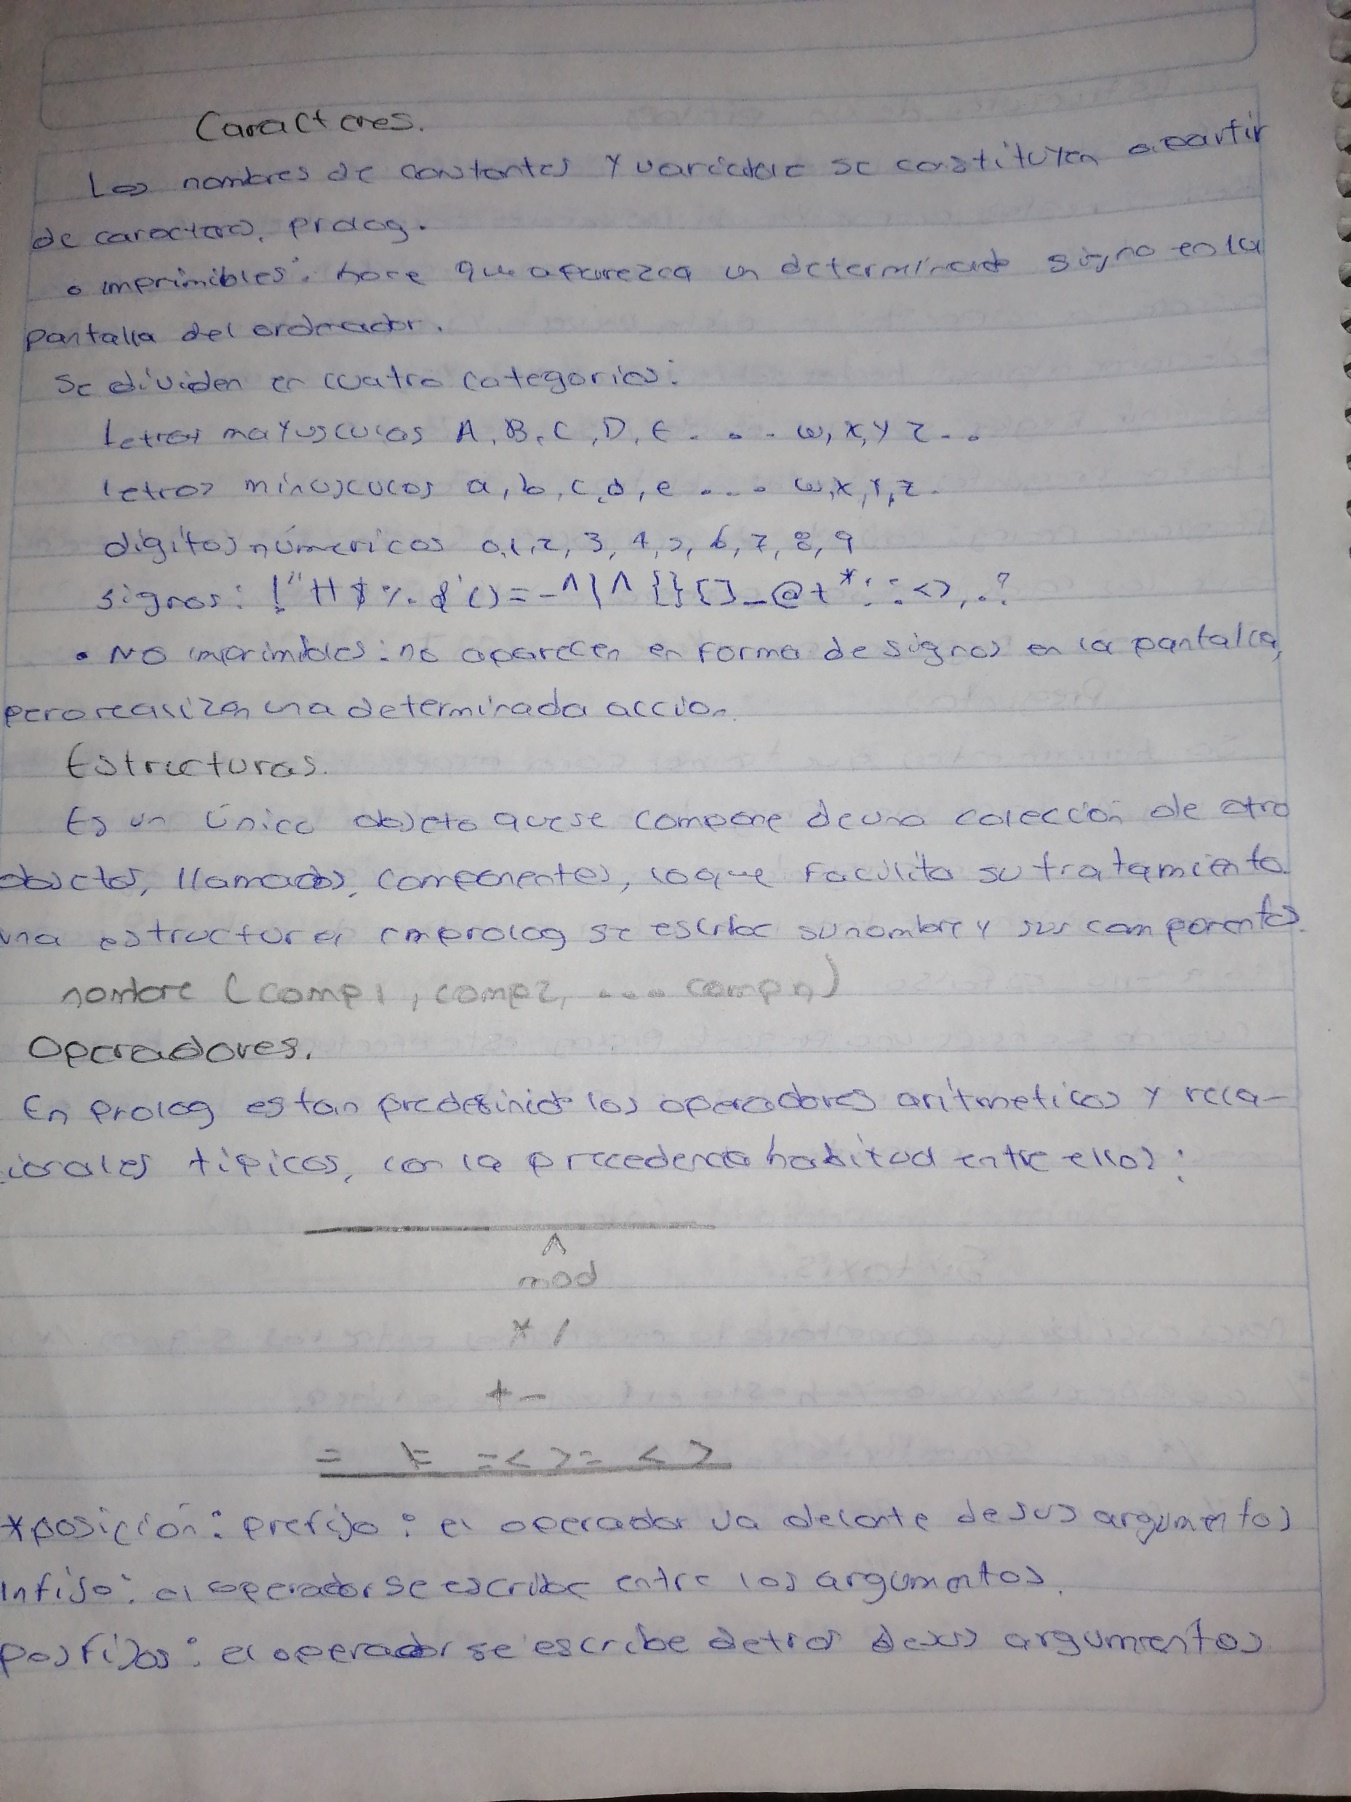 Caracteres.
Los nombres de constantes y variable se constituyen a partir
de caracteres, prolog.
o imprimibles: hace que aparezca un determinado signo en la
pantalla del ordenador.
Se dividen en cuatro categorias:
Letras mayusculas A, B, C, D, E . . . . w, x, y z . . .
letras minusculas a, b, c, d, e . . . . w, x, y, z .
digitos númericos 0,1,2, 3, 4, 5, 6, 7, 8, 9
signos: ! " # $ % & ' () = - ^ | ^ {} [] _ @ + * ; : <> , . ?
• No imprimibles: no aparecen en forma de signos en la pantalla,
pero realizan una determinada accion.
Estructuras.
Es un único objeto que se compone de una colección de otro
objetos, llamados, componentes, lo que facilita su tratamiento
una estructura en prolog se escribe su nombre y sus componentes.
nombre (comp1, comp2, .... compn)
Operadores.
En prolog estan predefinidos los operadores aritmeticos y rela-
cionales tipicos, con la precedencia habitual entre ellos:
^
mod
* /
+ -
= \= =< >= < >
*posición: prefijo: el operador va delante de sus argumentos
Infijo: el operador se escribe entre los argumentos.
posfijos: el operador se escribe detras de sus argumentos